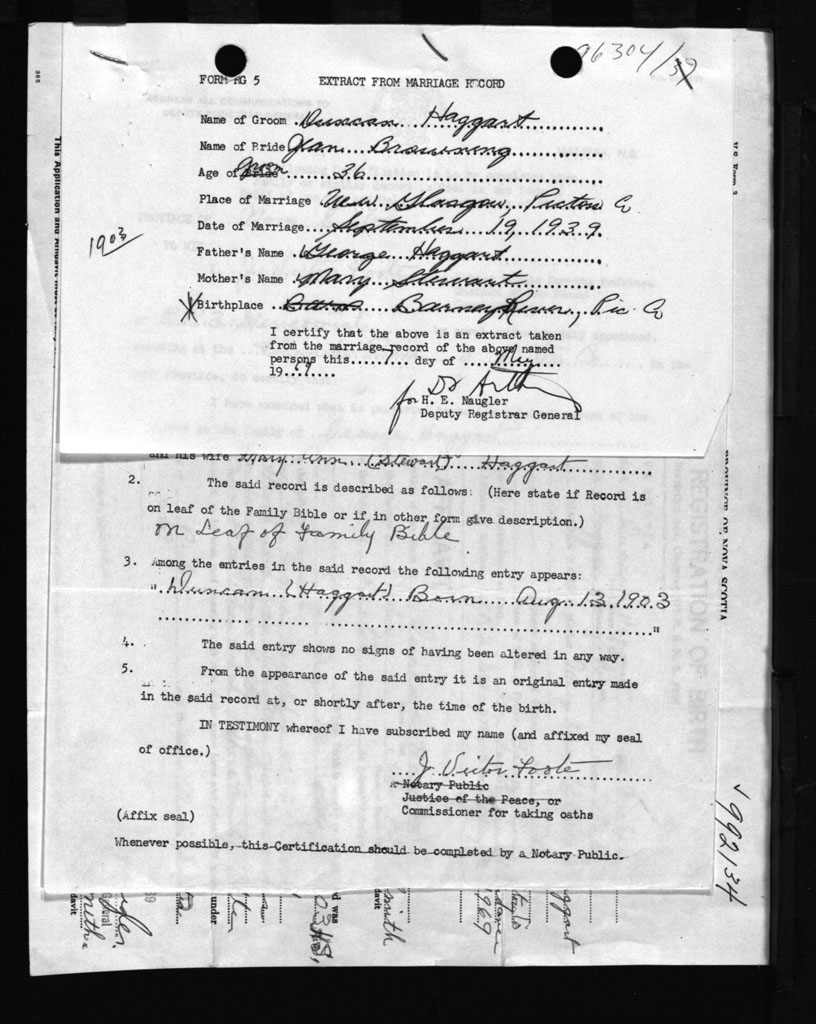 06304/39
FORM RG 5 EXTRACT FROM MARRIAGE RECORD
Name of Groom Duncan Haggart
Name of Bride Jean Browning
Age of Bride Groom 36
Place of Marriage New Glasgow Pictou Co
Date of Marriage September 19, 1939
Father's Name George Haggart
1903
Mother's Name Mary Stewart
X Birthplace Barns Barney River, Pic. Co
I certify that the above is an extract taken
from the marriage record of the above named
persons this 7 day of May
1969
for H. E. Naugler
Deputy Registrar General
and his wife Mary Ann (Stewart) Haggart
2. The said record is described as follows: (Here state if Record is
on leaf of the Family Bible or if in other form give description.)
on Leaf of Family Bible
3. Among the entries in the said record the following entry appears:
" Duncan (Haggart) Born Aug. 13 1903
"
4. The said entry shows no signs of having been altered in any way.
5. From the appearance of the said entry it is an original entry made
in the said record at, or shortly after, the time of the birth.
IN TESTIMONY whereof I have subscribed my name (and affixed my seal
of office.)
J. Victor Foote
A Notary Public
Justice of the Peace, or
Commissioner for taking oaths
(Affix seal)
Whenever possible, this Certification should be completed by a Notary Public.
PROVINCE OF NOVA SCOTIA
REGISTRATION OF BIRTH
992134
This Application and
davit
under
davit
1969